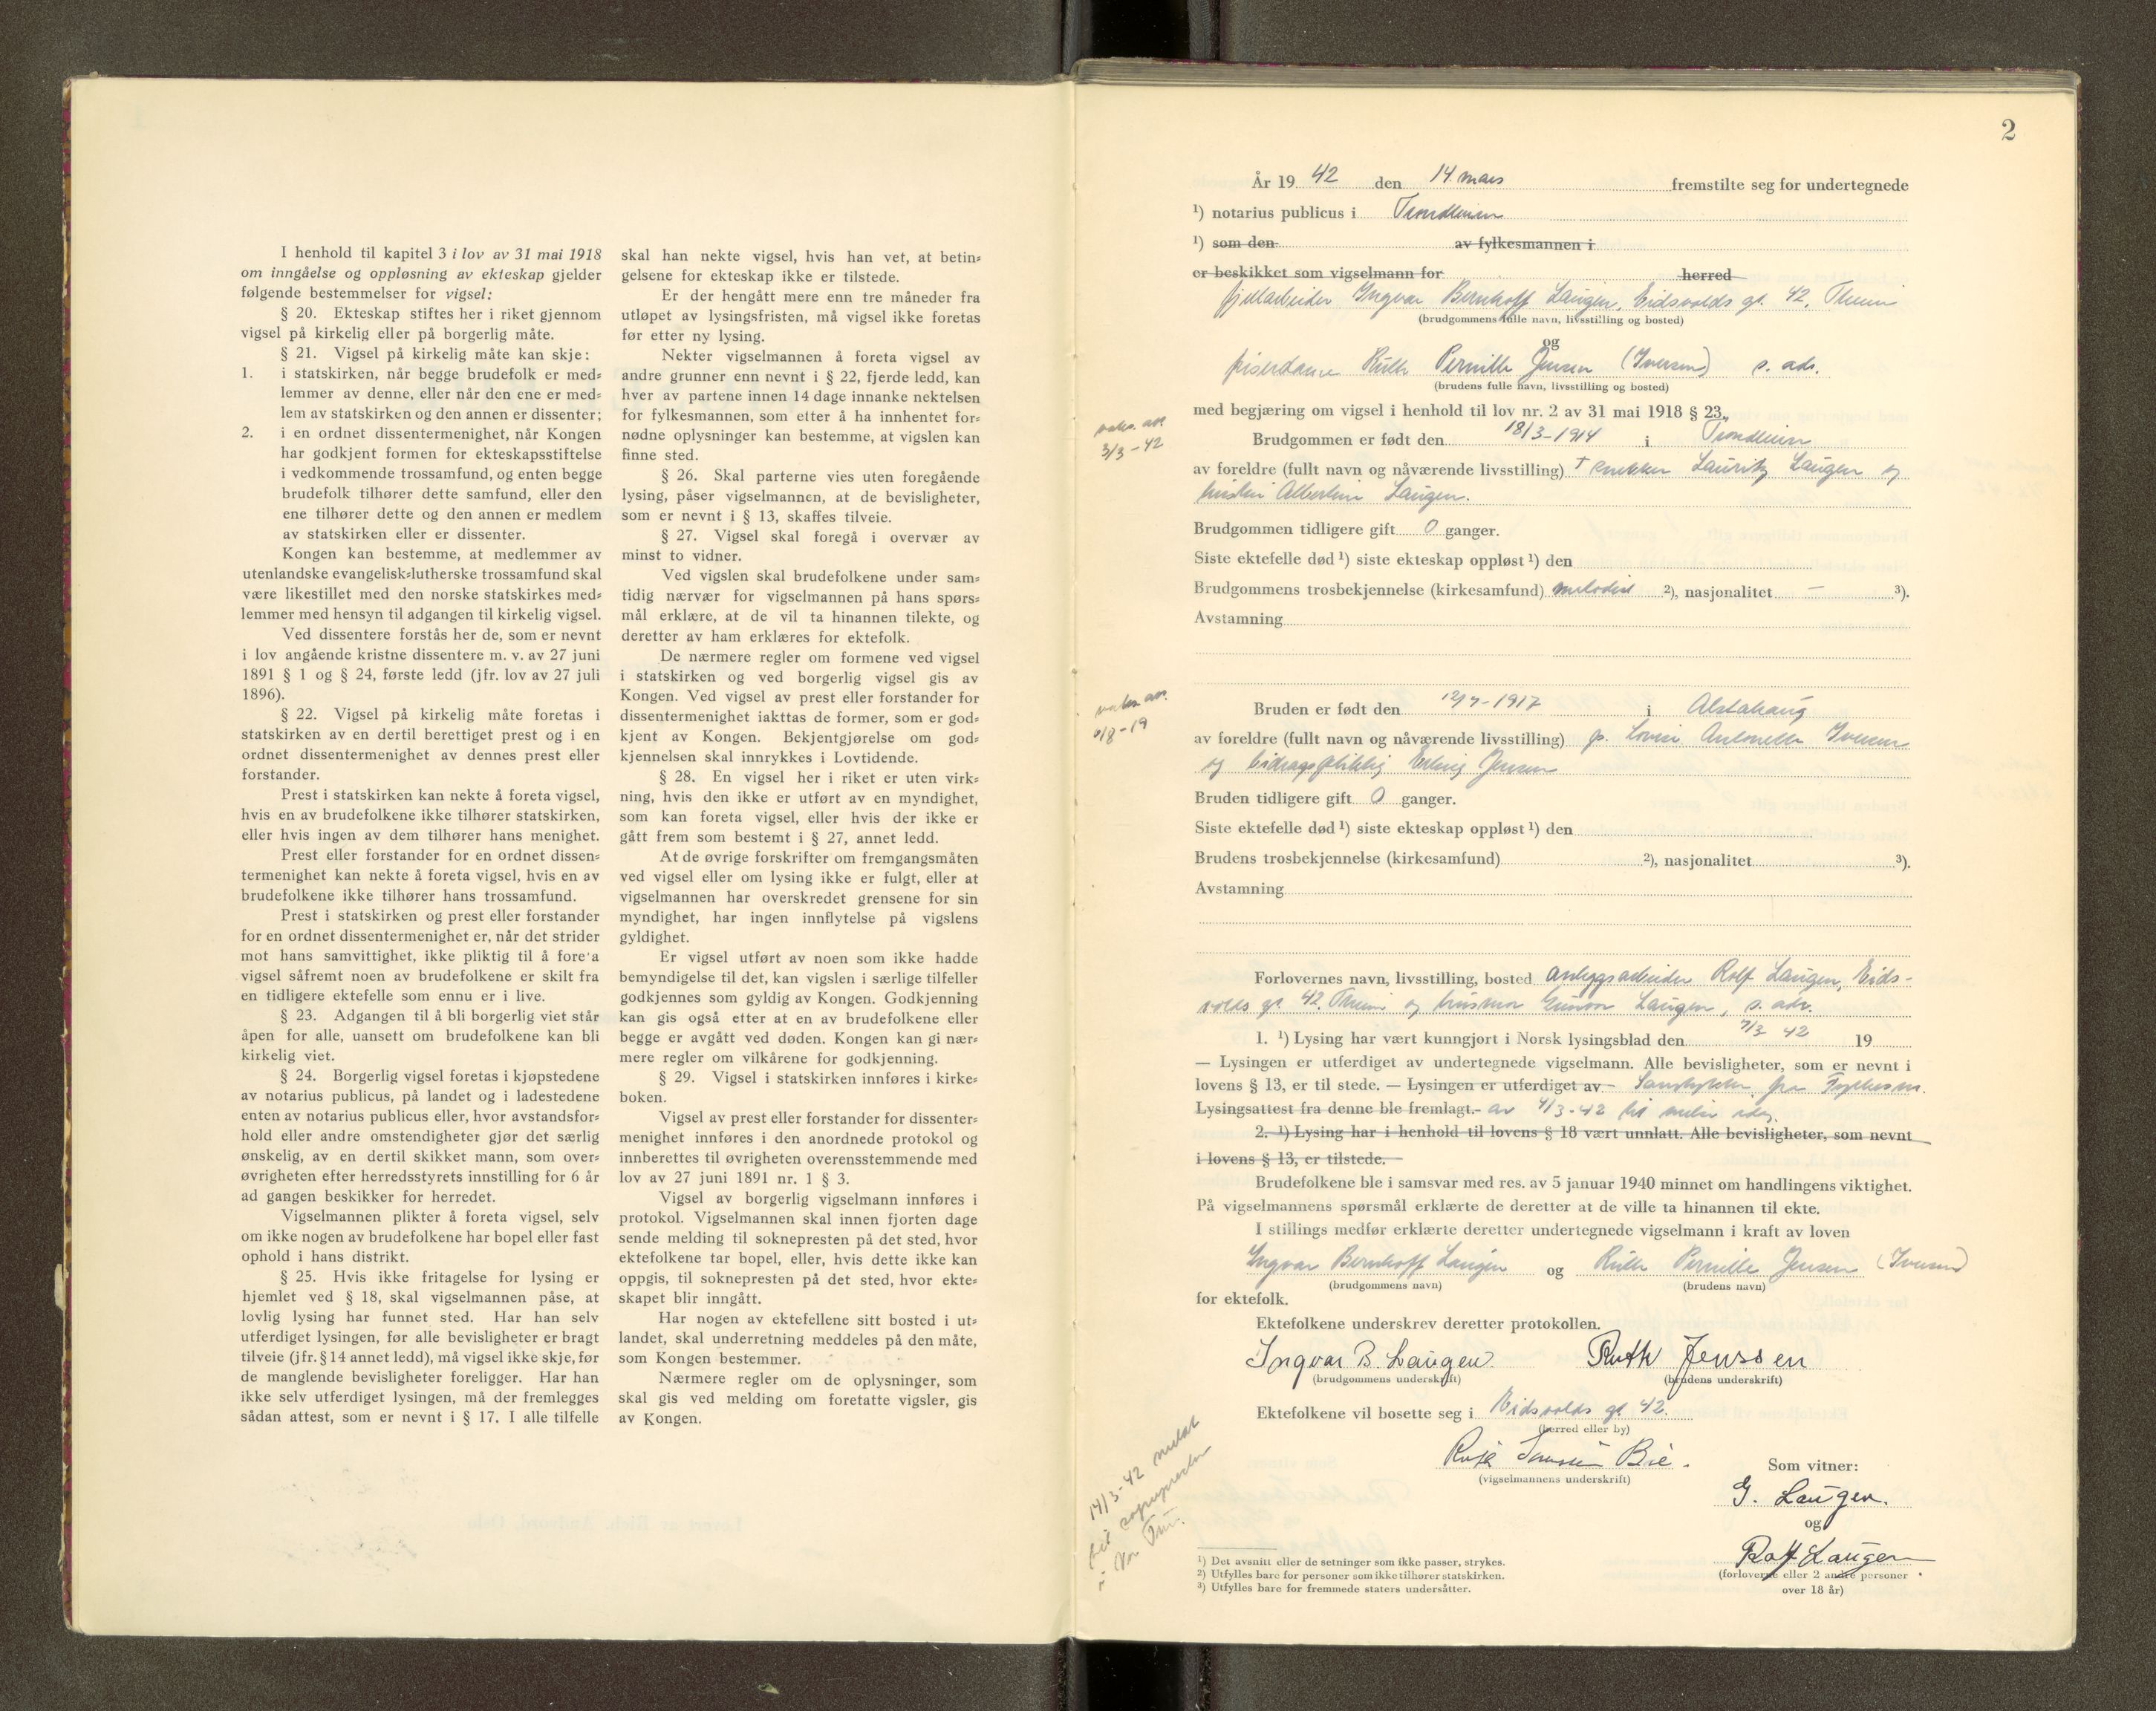 I henhold til kapitel 3 i lov av 31 mai 1918
om inngåelse og oppløsning av ekteskap gjelder
følgende bestemmelser for vigsel:
§ 20. Ekteskap stiftes her i riket gjennom
vigsel på kirkelig eller på borgerlig måte.
§ 21. Vigsel på kirkelig måte kan skje:
1. i statskirken, når begge brudefolk er med-
lemmer av denne, eller når den ene er med-
lem av statskirken og den annen er dissenter;
2. i en ordnet dissentermenighet, når Kongen
har godkjent formen for ekteskapsstiftelse
i vedkommende trossamfund, og enten begge
brudefolk tilhører dette samfund, eller den
ene tilhører dette og den annen er medlem
av statskirken eller er dissenter.
Kongen kan bestemme, at medlemmer av
utenlandske evangelisk-lutherske trossamfund skal
være likestillet med den norske statskirkes med-
lemmer med hensyn til adgangen til kirkelig vigsel.
Ved dissentere forstås her de, som er nevnt
i lov angående kristne dissentere m. v. av 27 juni
1891 § 1 og § 24, første ledd (jfr. lov av 27 juli
1896).
§ 22. Vigsel på kirkelig måte foretas i
statskirken av en dertil berettiget prest og i en
ordnet dissentermenighet av dennes prest eller
forstander.
Prest i statskirken kan nekte å foreta vigsel,
hvis en av brudefolkene ikke tilhører statskirken,
eller hvis ingen av dem tilhører hans menighet.
Prest eller forstander for en ordnet dissen-
termenighet kan nekte å foreta vigsel, hvis en av
brudefolkene ikke tilhører hans trossamfund.
Prest i statskirken og prest eller forstander
for en ordnet dissentermenighet er, når det strider
mot hans samvittighet, ikke pliktig til å fore'a
vigsel såfremt noen av brudefolkene er skilt fra
en tidligere ektefelle som ennu er i live.
§ 23. Adgangen til å bli borgerlig viet står
åpen for alle, uansett om brudefolkene kan bli
kirkelig viet.
§ 24. Borgerlig vigsel foretas i kjøpstedene
av notarius publicus, på landet og i ladestedene
enten av notarius publicus eller, hvor avstandsfor-
hold eller andre omstendigheter gjør det særlig
ønskelig, av en dertil skikket mann, som over-
øvrigheten efter herredsstyrets innstilling for 6 år
ad gangen beskikker for herredet.
Vigselmannen plikter å foreta vigsel, selv
om ikke nogen av brudefolkene har bopel eller fast
ophold i hans distrikt.
§ 25. Hvis ikke fritagelse for lysing er
hjemlet ved § 18, skal vigselmannen påse, at
lovlig lysing har funnet sted. Har han selv
utferdiget lysingen, før alle bevisligheter er bragt
tilveie (jfr. § 14 annet ledd), må vigsel ikke skje, før
de manglende bevisligheter foreligger. Har han
ikke selv utferdiget lysingen, må der fremlegges
sådan attest, som er nevnt i § 17. I alle tilfelle
skal han nekte vigsel, hvis han vet, at betin-
gelsene for ekteskap ikke er tilstede.
Er der hengått mere enn tre måneder fra
utløpet av lysingsfristen, må vigsel ikke foretas
før etter ny lysing.
Nekter vigselmannen å foreta vigsel av
andre grunner enn nevnt i § 22, fjerde ledd, kan
hver av partene innen 14 dage innanke nektelsen
for fylkesmannen, som etter å ha innhentet for-
nødne oplysninger kan bestemme, at vigslen kan
finne sted.
§ 26. Skal parterne vies uten foregående
lysing, påser vigselmannen, at de bevisligheter,
som er nevnt i § 13, skaffes tilveie.
§ 27. Vigsel skal foregå i overvær av
minst to vidner.
Ved vigslen skal brudefolkene under sam-
tidig nærvær for vigselmannen på hans spørs-
mål erklære, at de vil ta hinannen tilekte, og
deretter av ham erklæres for ektefolk.
De nærmere regler om formene ved vigsel
i statskirken og ved borgerlig vigsel gis av
Kongen. Ved vigsel av prest eller forstander for
dissentermenighet iakttas de former, som er god-
kjent av Kongen. Bekjentgjørelse om god-
kjennelsen skal innrykkes i Lovtidende.
§ 28. En vigsel her i riket er uten virk-
ning, hvis den ikke er utført av en myndighet,
som kan foreta vigsel, eller hvis der ikke er
gått frem som bestemt i § 27, annet ledd.
At de øvrige forskrifter om fremgangsmåten
ved vigsel eller om lysing ikke er fulgt, eller at
vigselmannen har overskredet grensene for sin
myndighet, har ingen innflytelse på vigslens
gyldighet.
Er vigsel utført av noen som ikke hadde
bemyndigelse til det, kan vigslen i særlige tilfeller
godkjennes som gyldig av Kongen. Godkjenning
kan gis også etter at en av brudefolkene eller
begge er avgått ved døden. Kongen kan gi nær-
mere regler om vilkårene for godkjenning.
§ 29. Vigsel i statskirken innføres i kirke-
boken.
Vigsel av prest eller forstander for dissenter-
menighet innføres i den anordnede protokol og
innberettes til øvrigheten overensstemmende med
lov av 27 juni 1891 nr. 1 § 3.
Vigsel av borgerlig vigselmann innføres i
protokol. Vigselmannen skal innen fjorten dage
sende melding til soknepresten på det sted, hvor
ektefolkene tar bopel, eller, hvis dette ikke kan
oppgis, til soknepresten på det sted, hvor ekte-
skapet blir inngått.
Har nogen av ektefellene sitt bosted i ut-
landet, skal underretning meddeles på den måte,
som Kongen bestemmer.
Nærmere regler om de oplysninger, som
skal gis ved melding om foretatte vigsler, gis
av Kongen.
2
År 19 42 den 14. mars fremstilte seg for undertegnede
¹) notarius publicus i Trondheim
¹) som den av fylkesmannen i
er beskikket som vigselmann for herred
fjellarbeider Ingvar Bernhoff Laugen, Eidsvolds gt. 42, Theim
(brudgommens fulle navn, livsstilling og bosted)
og
frisørdame Ruth Pernille Jensen (Iversen) s. adr.
(brudens fulle navn, livsstilling og bosted)
med begjæring om vigsel i henhold til lov nr. 2 av 31 mai 1918 § 23.
vaks. att.
3/3-42
Brudgommen er født den 18/3-1914 i Trondheim
av foreldre (fullt navn og nåværende livsstilling) † snekker Lauritz Laugen og
hustru Albertine Laugen.
Brudgommen tidligere gift 0 ganger.
Siste ektefelle død ¹) siste ekteskap oppløst ¹) den
Brudgommens trosbekjennelse (kirkesamfund) metodist ²), nasjonalitet — ³).
Avstamning
vaks. att.
/8-19
Bruden er født den 12/7-1917 i Alstahaug
av foreldre (fullt navn og nåværende livsstilling) p. Lovise Antonette Iversen
og bidragspliktig Erling Jensen
Bruden tidligere gift 0 ganger.
Siste ektefelle død ¹) siste ekteskap oppløst ¹) den
Brudens trosbekjennelse (kirkesamfund) ²), nasjonalitet ³).
Avstamning
Forlovernes navn, livsstilling, bosted Anleggsarbeider Rolf Laugen, Eids-
volds gt. 42. Theim og husmor Gunvor Laugen, s. adr.
1. ¹) Lysing har vært kunngjort i Norsk lysingsblad den 7/3 42 19
— Lysingen er utferdiget av undertegnede vigselmann. Alle bevisligheter, som er nevnt i
lovens § 13, er til stede. — Lysingen er utferdiget av - Samtykke fra Fylkesm.
Lysingsattest fra denne ble fremlagt. - av 4/3-42
2. ¹) Lysing har i henhold til lovens § 18 vært unnlatt. Alle bevisligheter, som nevnt
i lovens § 13, er tilstede. —
Brudefolkene ble i samsvar med res. av 5 januar 1940 minnet om handlingens viktighet.
På vigselmannens spørsmål erklærte de deretter at de ville ta hinannen til ekte.
I stillings medfør erklærte deretter undertegnede vigselmann i kraft av loven
Ingvar Bernhoff Laugen og Ruth Pernille Jensen (Iversen)
(brudgommens navn) (brudens navn)
for ektefolk.
Ektefolkene underskrev deretter protokollen.
Ingvar B. Laugen Ruth Jenssen
(brudgommens underskrift) (brudens underskrift)
Ektefolkene vil bosette seg i Eidsvolds gt. 42.
(herred eller by)
Bie.
(vigselmannens underskrift)
Som vitner:
G. Laugen.
og
Rolf Laugen
(forloverne eller 2 andre personer
over 18 år)
14/3-42 meldt
til sognepresten
i Vor Fru.
¹) Det avsnitt eller de setninger som ikke passer, strykes.
²) Utfylles bare for personer som ikke tilhører statskirken.
³) Utfylles bare for fremmede staters undersåtter.